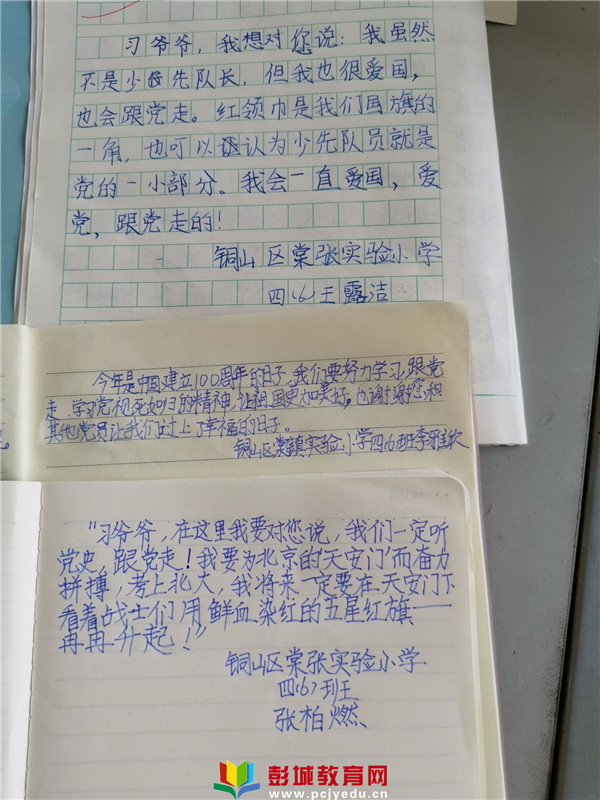 习爷爷，我想对您说：我虽然
不是少先队长，但我也很爱国，
也会跟党走。红领巾是我们国旗的
一角，也可以认为少先队员就是
党的一小部分。我会一直爱国，爱
党，跟党走的！
铜山区棠张实验小学
四(6)王露洁
今年是中国建立100周年的日子,我们要努力学习,跟党
走,学习党视死如归的精神,让祖国更加美好。也谢谢您和
其他党员让我们过上了幸福的日子。
铜山区棠镇实验小学四(6)班李雅欣
“习爷爷，在这里我要对您说，我们一定听
党史，跟党走！我要为北京的‘天安门’而奋力
拼搏，考上北大，我将来一定要在天安门下
看着战士们用鲜血染红的五星红旗——
冉冉升起！”
铜山区棠张实验小学
四(6)班
张柏燃
彭城教育网
www.pcjyedu.cn